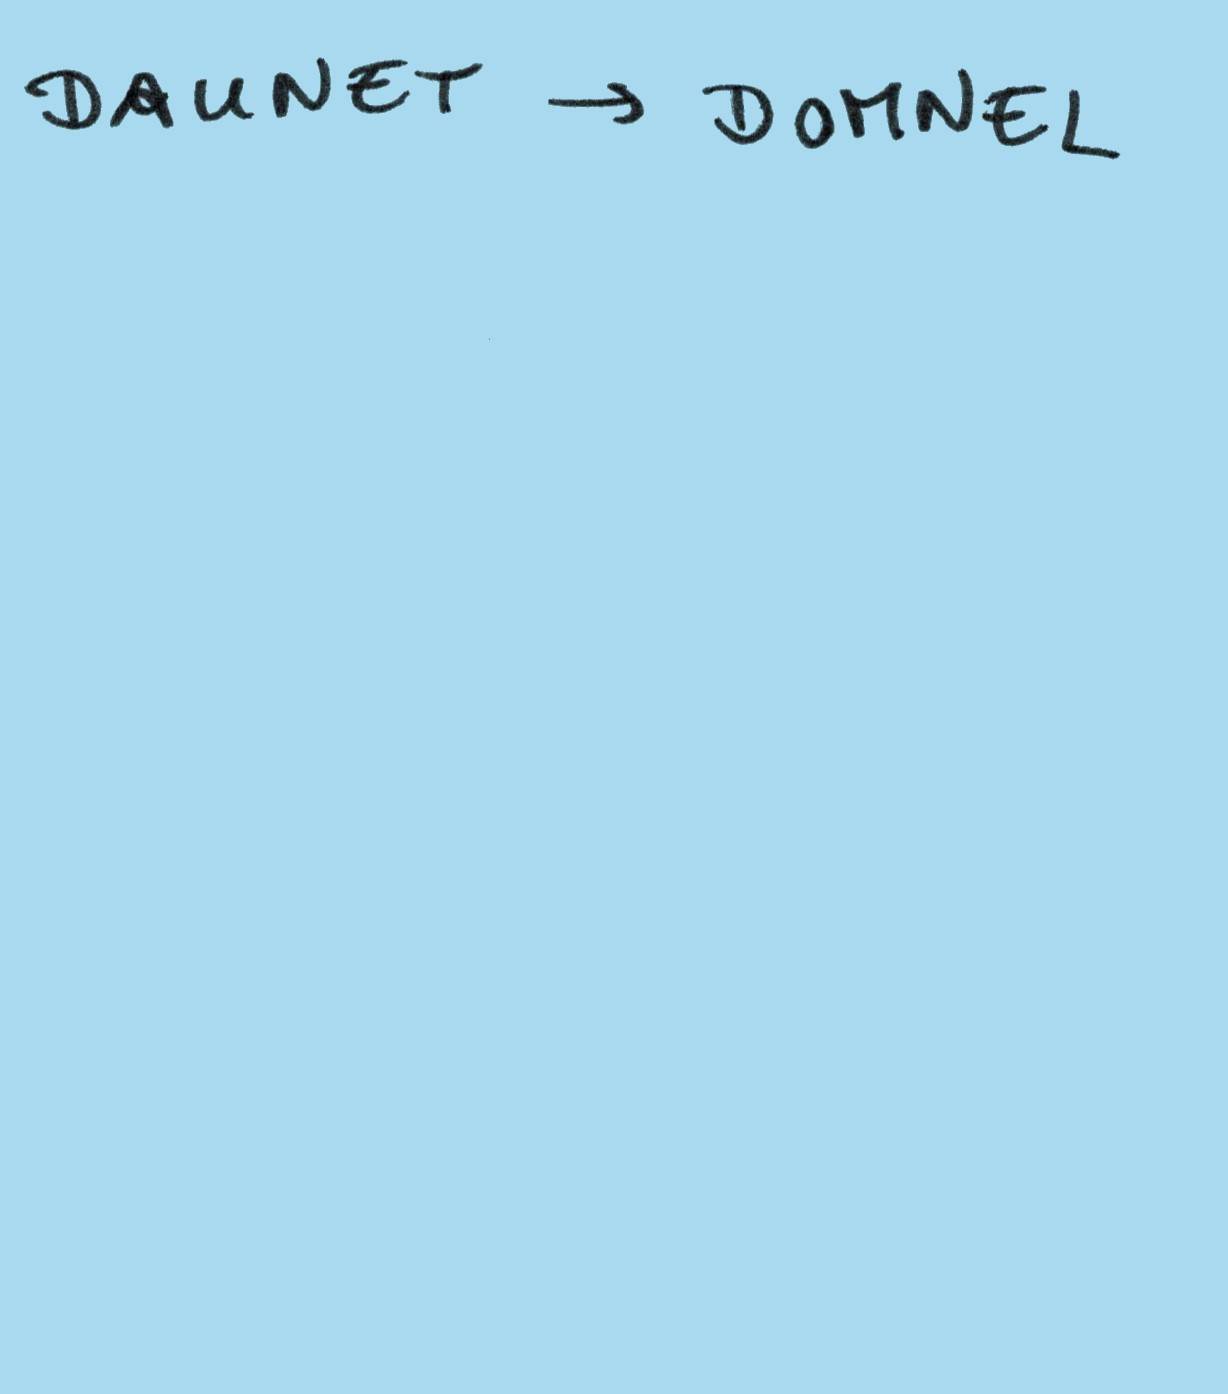 DAUNET → DOMNEL